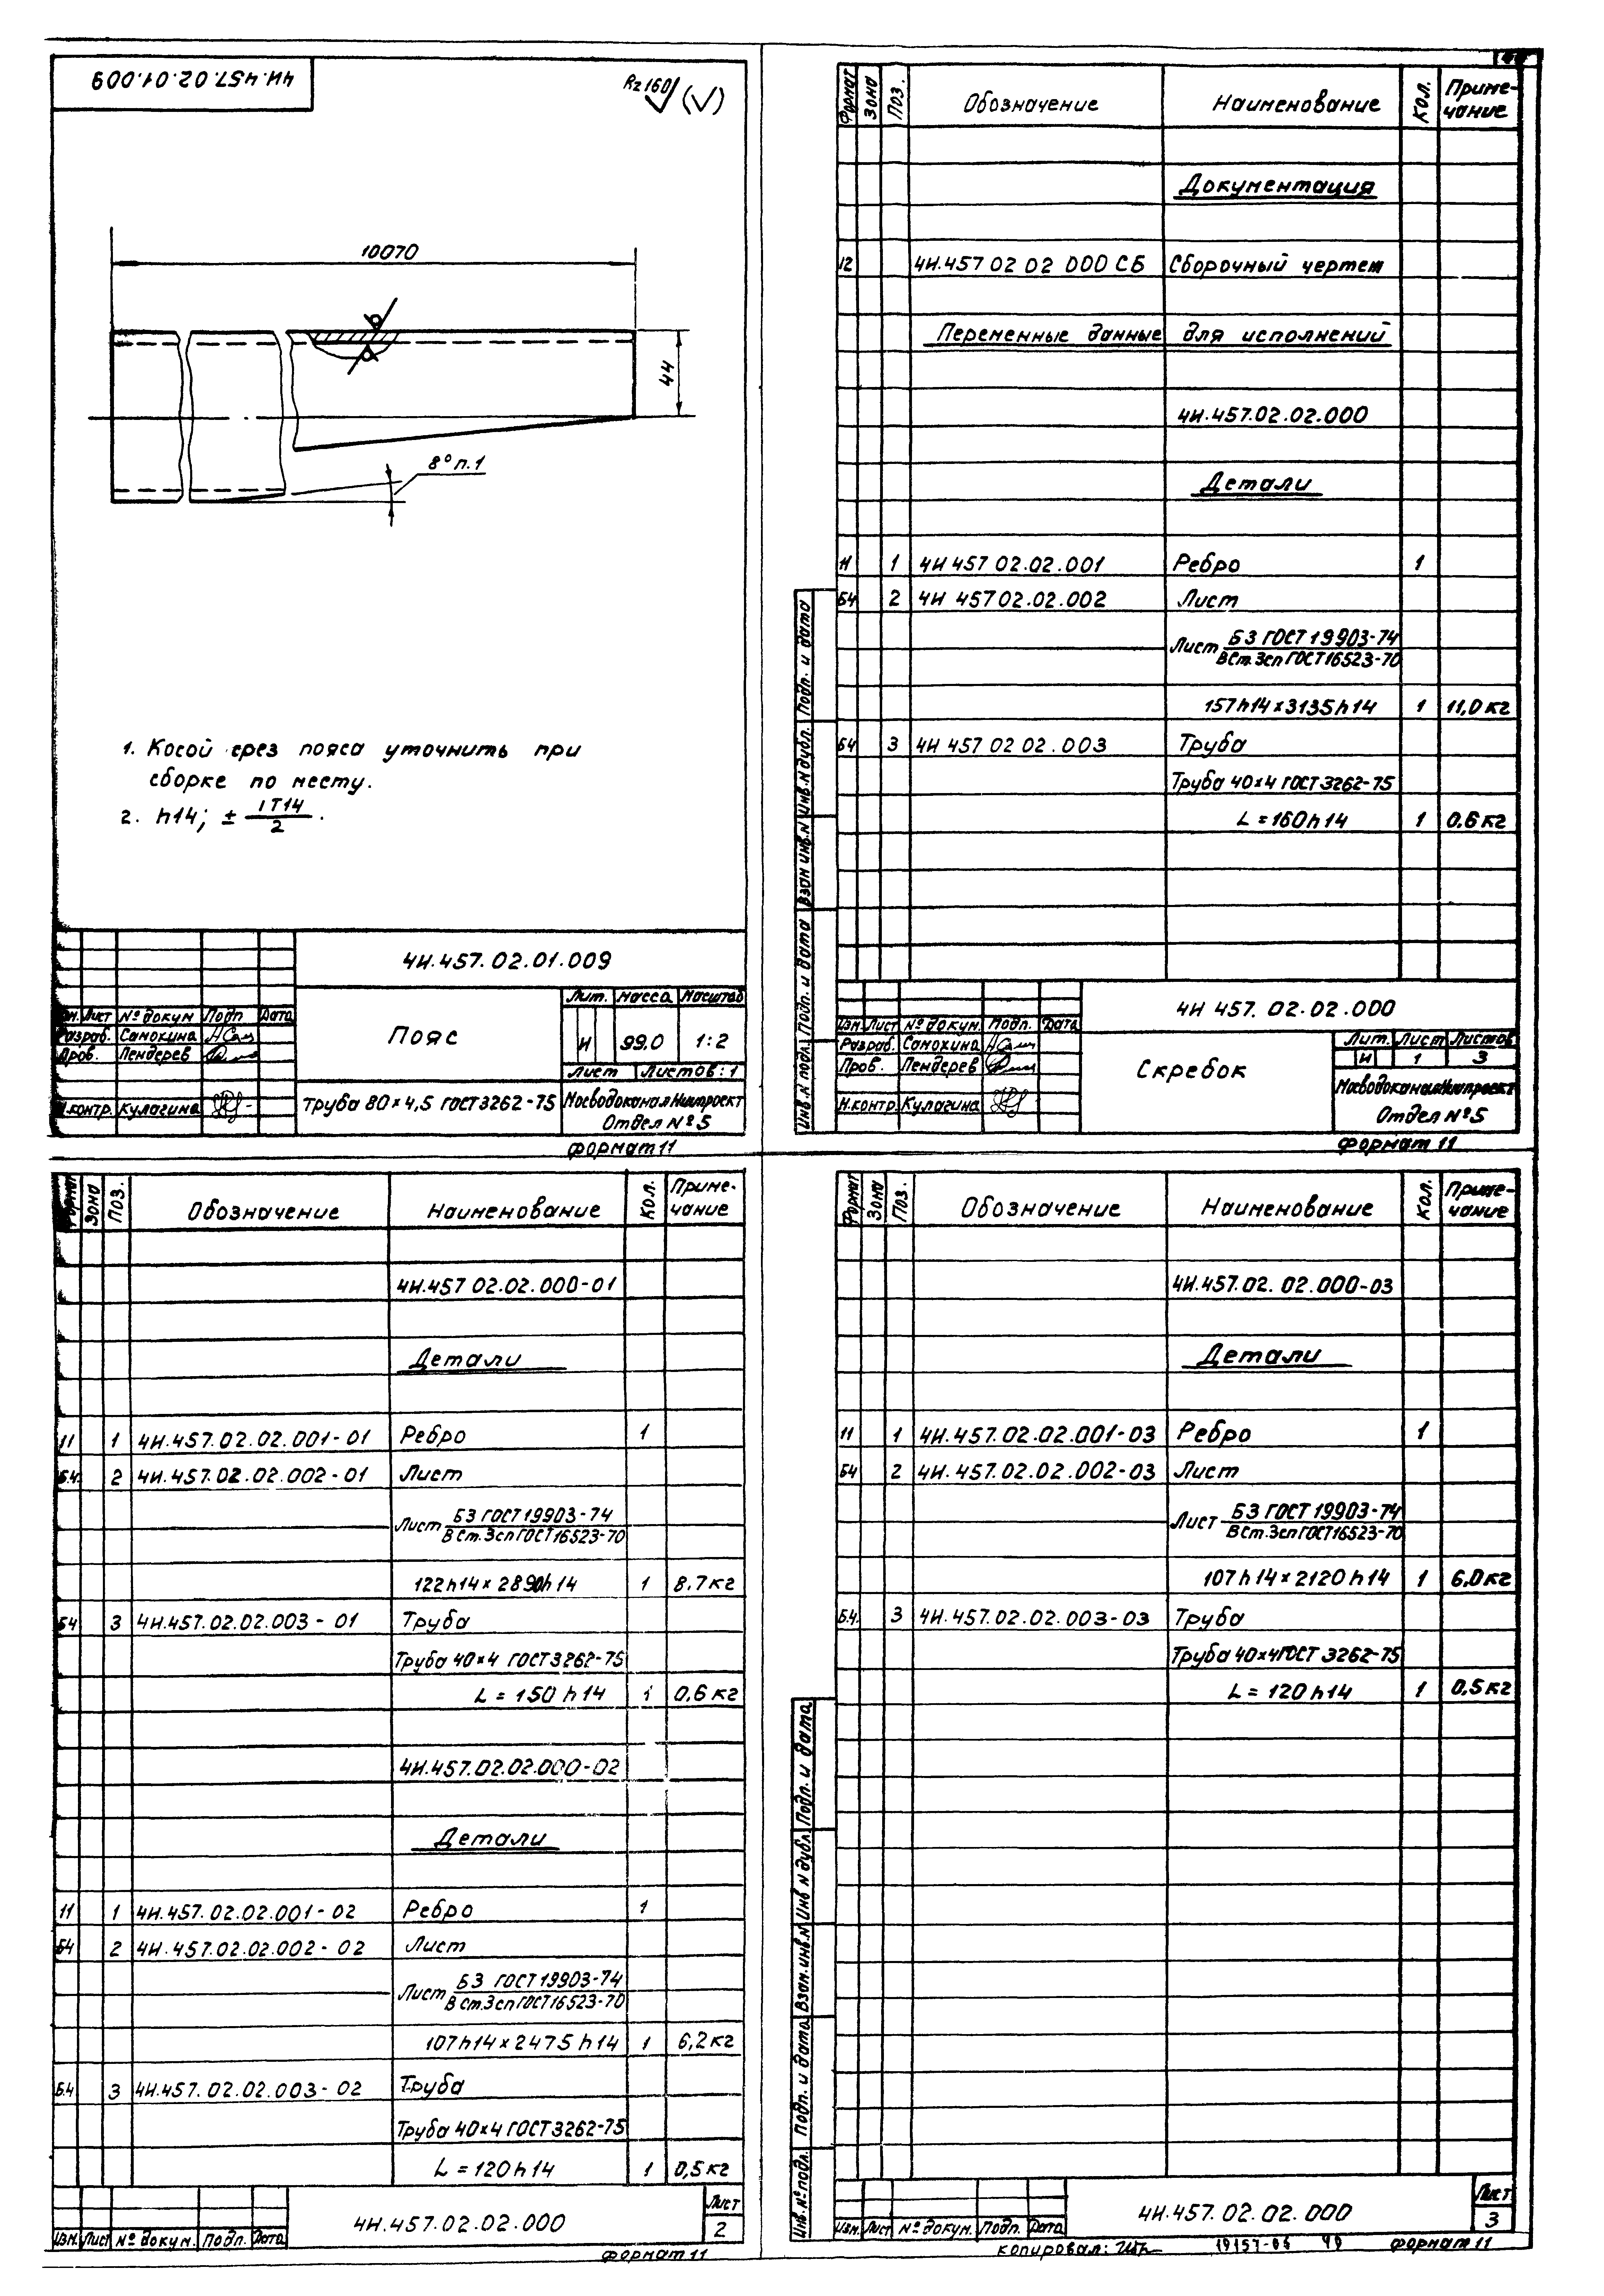 4И.457.02.01.009
Rz160 (√)
10070
44
8° п.1
1. Косой срез пояса уточнить при
сборке по месту.
2. h14; ± IT14/2.
4И.457.02.01.009
Изм. Лист № докум Подп Дата
Разраб. Санокина
Пров. Пендерев
Н.контр. Кулагина
Пояс
Лит. Масса Масштаб
И 99.0 1:2
Лист Листов: 1
Труба 80×4,5 ГОСТ 3262-75
МосводоканалНиипроект
Отдел №5
Формат 11
Формат Зона Поз. Обозначение Наименование Кол. Примечание
Документация
12 4И.457 02 02 000 СБ Сборочный чертеж
Переменные данные для исполнений
4И.457.02.02.000
Детали
11 1 4И 457 02.02.001 Ребро 1
Б4 2 4И 457 02.02.002 Лист
Лист Б3 ГОСТ 19903-74
В Ст.3сп ГОСТ 16523-70
157h14×3135h14 1 11,0кг
Б4 3 4И 457 02 02.003 Труба
Труба 40×4 ГОСТ 3262-75
L=160h14 1 0,6кг
Инв.№ подл. Подп. и дата Взам инв.№ Инв.№ дубл. Подп. и дата
4И 457. 02.02.000
Изм. Лист № докум. Подп. Дата
Разраб. Санокина
Пров. Пендерев
Н.контр. Кулагина
Скребок
Лит. Лист Листов
И 1 3
МосводоканалНиипроект
Отдел №5
Формат 11
Формат Зона Поз. Обозначение Наименование Кол. Примечание
4И.457 02.02.000-01
Детали
11 1 4И.457.02.02.001-01 Ребро 1
Б4. 2 4И.457.02.02.002-01 Лист
Лист Б3 ГОСТ 19903-74
В Ст.3сп ГОСТ 16523-70
122h14×2890h14 1 8,7кг
Б4 3 4И.457.02.02.003-01 Труба
Труба 40×4 ГОСТ 3262-75
L=150h14 1 0,6кг
4И.457.02.02.000-02
Детали
11 1 4И.457.02.02.001-02 Ребро 1
Б4 2 4И.457.02.02.002-02 Лист
Лист Б3 ГОСТ 19903-74
В Ст.3сп ГОСТ 16523-70
107h14×2475h14 1 6,2кг
Б4 3 4И.457.02.02.003-02 Труба
Труба 40×4 ГОСТ 3262-75
L=120h14 1 0,5кг
Изм. Лист № докум. Подп. Дата
4И.457.02.02.000
Лист
2
Формат 11
Формат Зона Поз. Обозначение Наименование Кол. Примечание
4И.457.02.02.000-03
Детали
11 1 4И.457.02.02.001-03 Ребро 1
Б4 2 4И.457.02.02.002-03 Лист
Лист Б3 ГОСТ 19903-74
В Ст.3сп ГОСТ 16523-70
107h14×2120h14 1 6,0кг
Б.4. 3 4И.457.02.02.003-03 Труба
Труба 40×4 ГОСТ 3262-75
L=120h14 1 0,5кг
Инв.№ подл. Подп. и дата Взам.инв.№ Инв № дубл. Подп. и дата
Изм. Лист № докум. Подп. Дата
4И.457.02.02.000
Лист
3
копировал: 19157-06 40 Формат 11